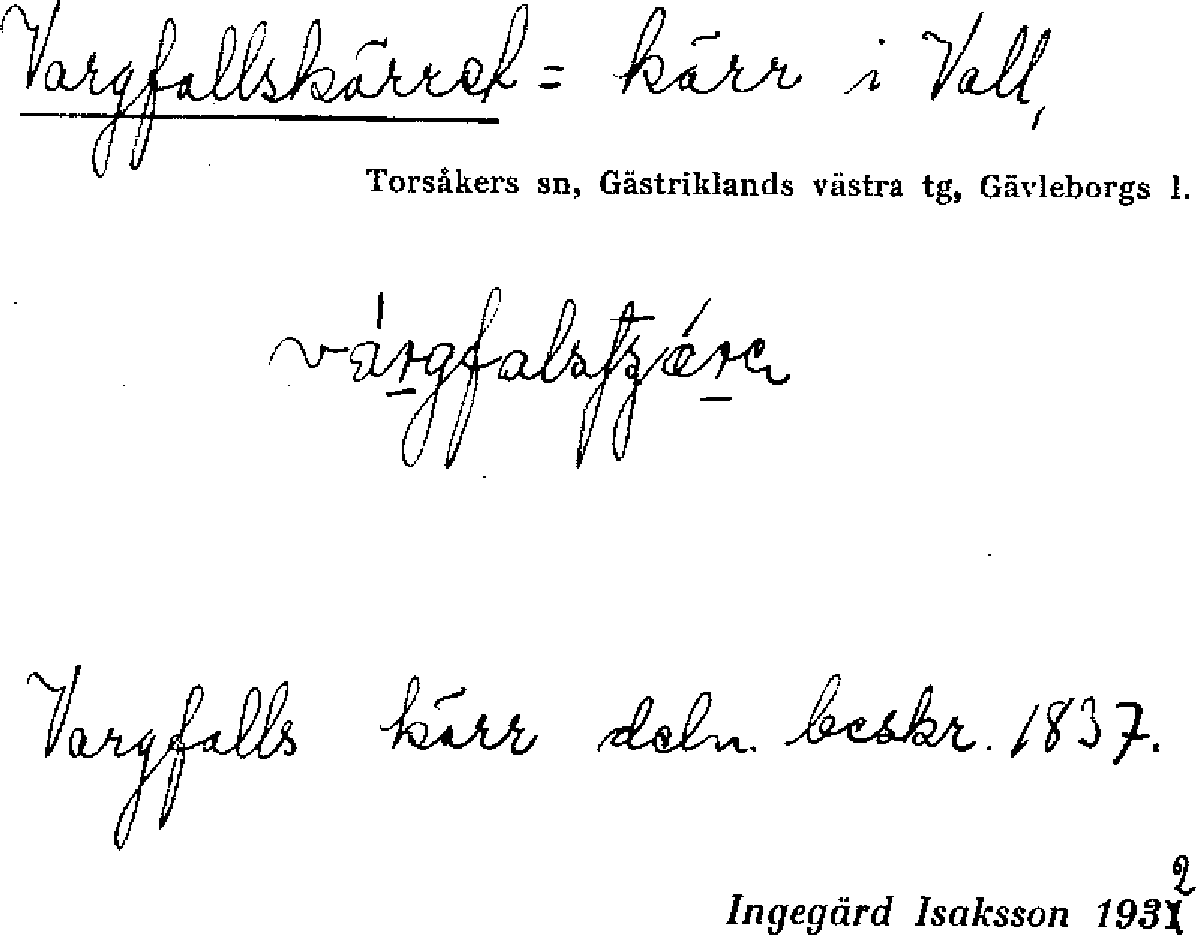 Vargfallskärret = kärr i Vall,
Torsåkers sn, Gästriklands västra tg, Gävleborgs l.
Vargfalls kärr deln. beskr. 1837.
Ingegärd Isaksson 1932